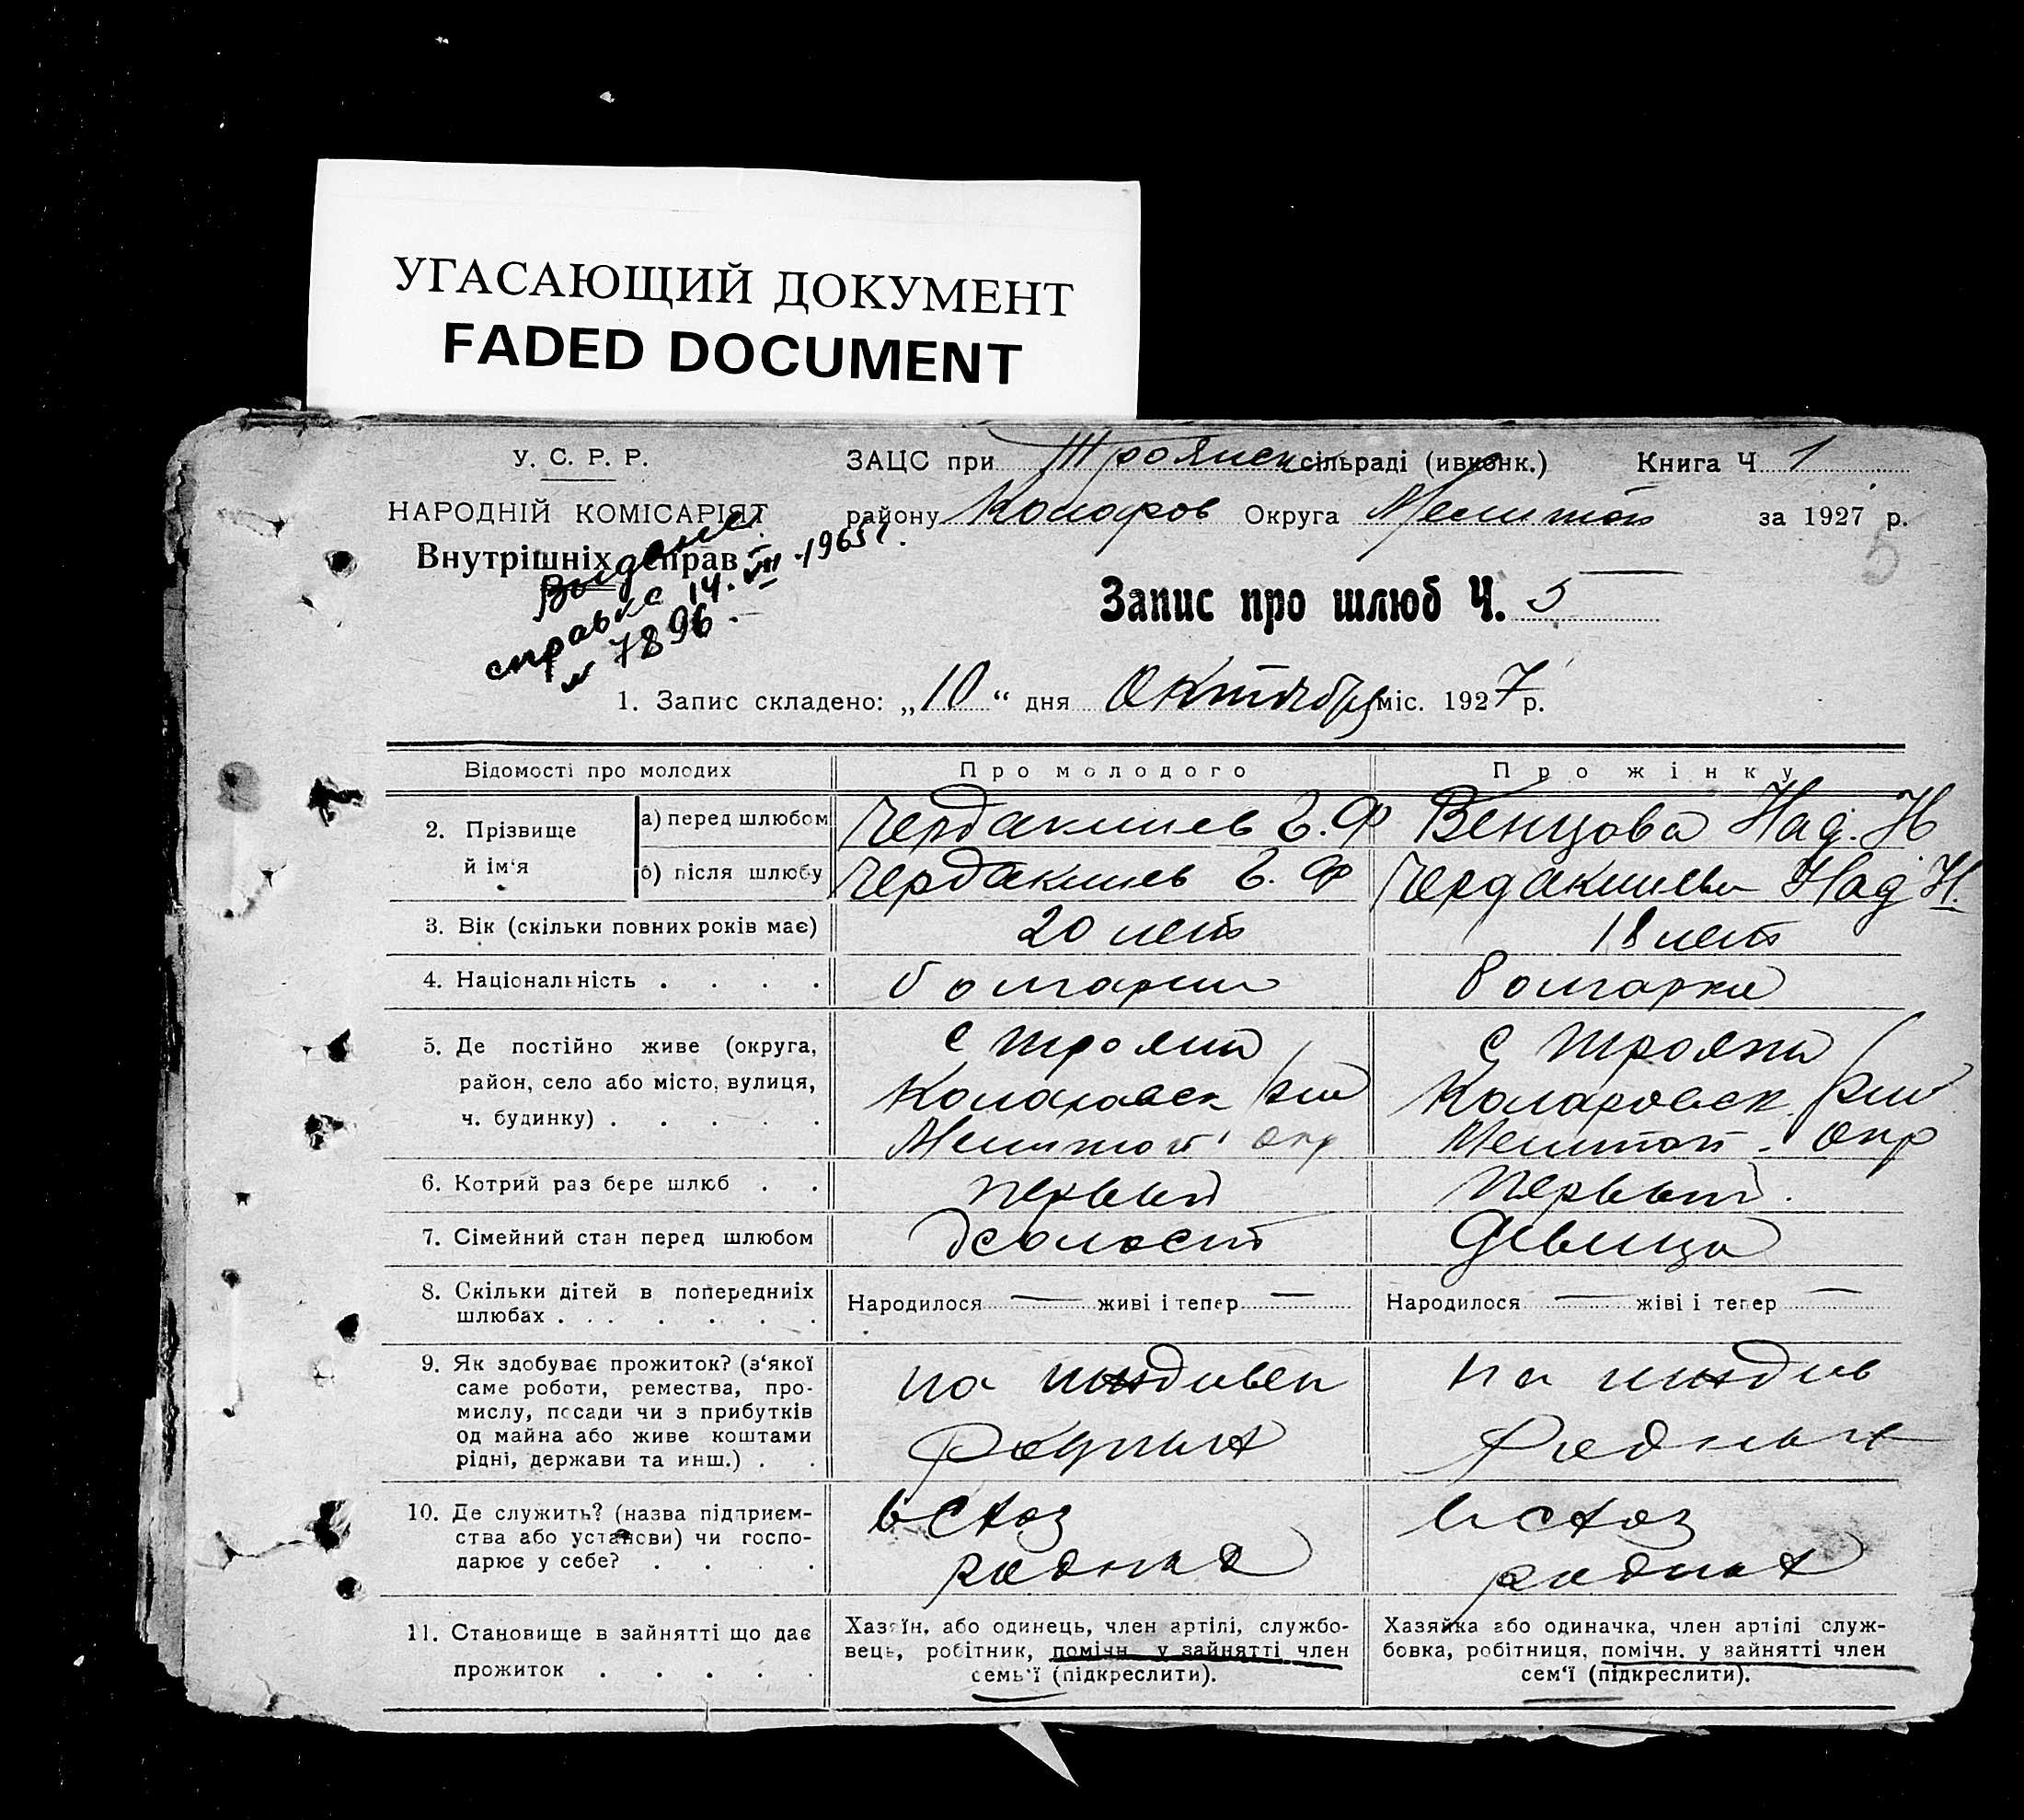 УГАСАЮЩИЙ ДОКУМЕНТ
FADED DOCUMENT
У. С. Р. Р.
НАРОДНІЙ КОМІСАРІЯТ
Внутрішніх справ
Выдана
справка 14.VII.1965 г.
№ 7896.
ЗАЦС при Троянск сільраді (ивконк.) Книга Ч 1
району Колоров Округа Мелитоп за 1927 р.
5
Запис про шлюб Ч. 5
1. Запис складено: „10“ дня Октября міс. 1927 р.
Відомості про молодих Про молодого Про жінку
2. Прізвище й ім‘я
а) перед шлюбом Чердаклиев Г. Ф Венцова Над. Н
б) після шлюбу Чердаклиев Г. Ф Чердаклиева Над Н.
3. Вік (скільки повних років має) 20 лет 18 лет
4. Національність . . . . болгарин болгарка
5. Де постійно живе (округа, район, село або місто, вулиця, ч. будинку) . . . . .
с Трояни
Коларовск р-на
Мелитоп Окр
с Трояни
Коларовск р-на
Мелитоп. Окр
6. Котрий раз бере шлюб . . первый Первый.
7. Сімейний стан перед шлюбом холост Девица
8. Скільки дітей в попередніх шлюбах . . . . . . .
Народилося — живі і тепер —
Народилося — жіві і тепер —
9. Як здобуває прожиток? (з‘якої
саме роботи, ремества, про-
мислу, посади чи з прибутків
од майна або живе коштами
рідні, держави та инш.) . .
на иждивен
Родных
на иждив
Родных
10. Де служить? (назва підприєм-
ства або установи) чи госпо-
дарює у себе? . . . .
в схоз
родных
в схоз
родных
11. Становище в зайнятті що дає
прожиток . . . . .
Хазяїн, або одинець, член артілі, службо-
вець, робітник, помічн. у зайнятті член
семь‘ї (підкреслити).
Хазяйка або одиначка, член артілі служ-
бовка, робітниця, помічн. у зайнятті член
сем‘ї (підкреслити).